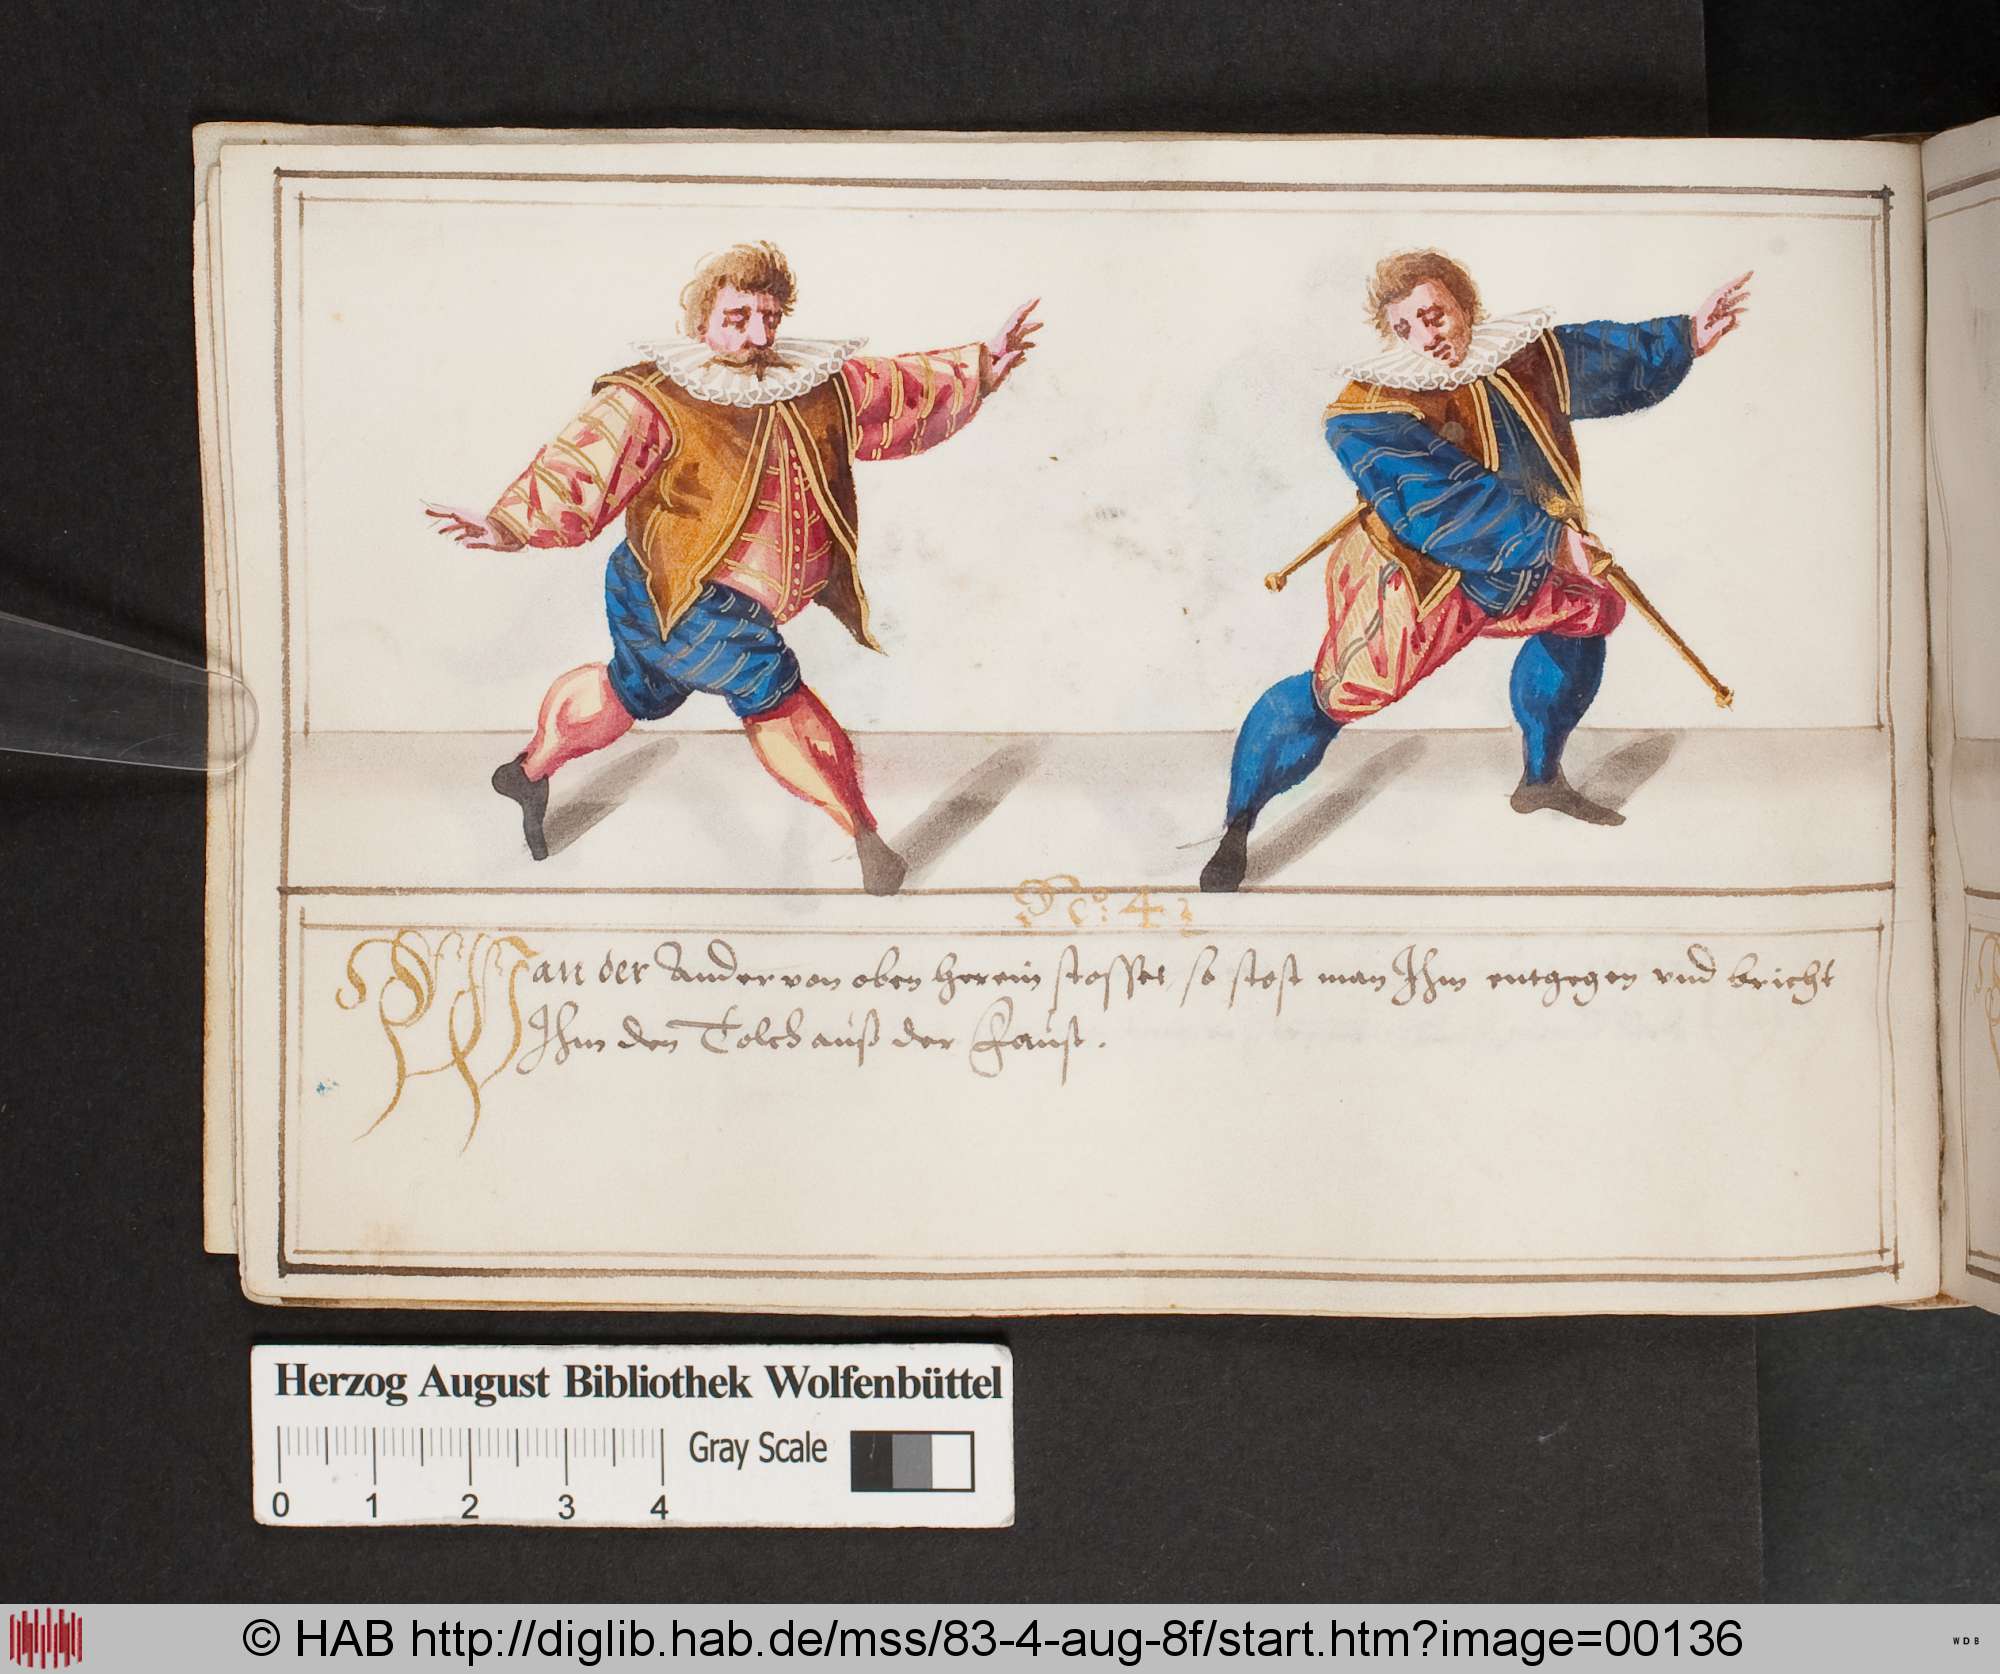 No: 42
Wan der Ander von oben herein stosset, so stost man Ihm entgegen vnd bricht
Ihm den Tolch auß der Faust.
Herzog August Bibliothek Wolfenbüttel
Gray Scale
0 1 2 3 4
© HAB http://diglib.hab.de/mss/83-4-aug-8f/start.htm?image=00136
WDB